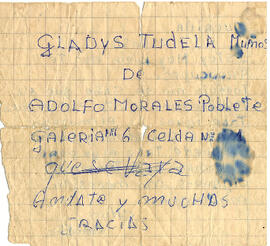 GLADYS TUDELA Muños
DE
ADOLFO MORALES Poblete
GALERIA Nº 6 CELDA Nº
que se vaya
Andate y muchas
GRACIAS